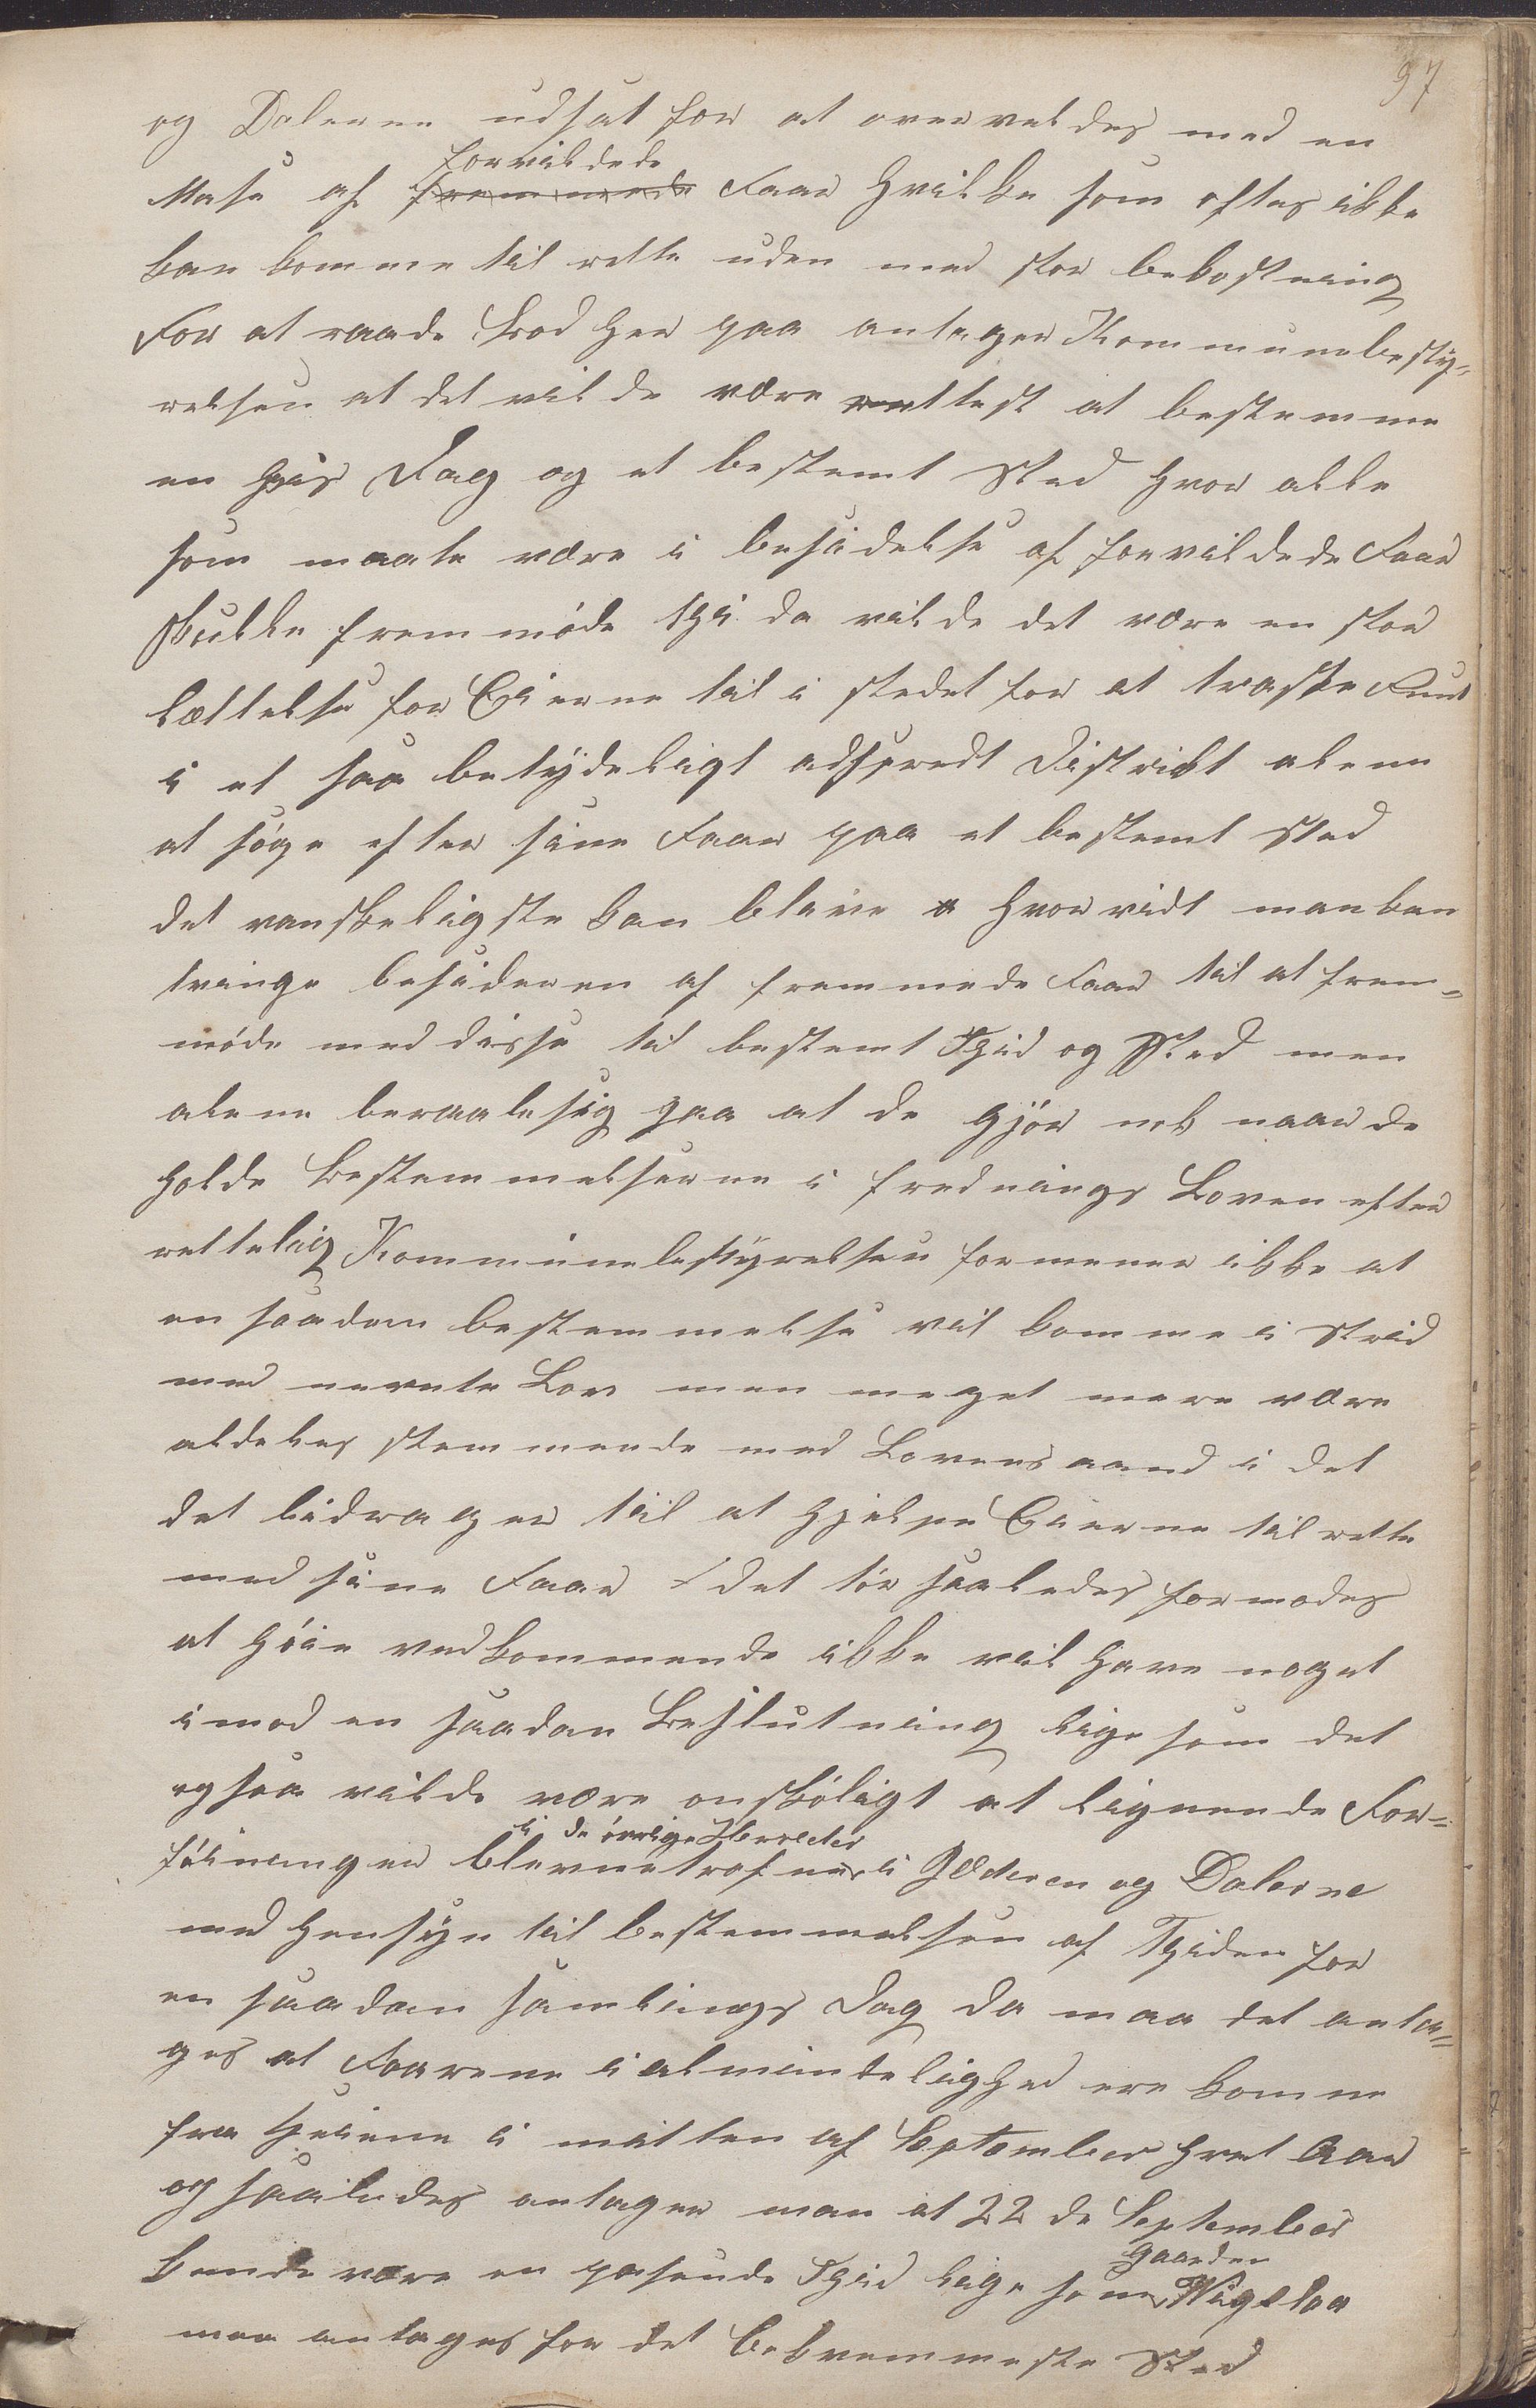 97
og Dalerne udsat for at overveldes med en
Mase af forvildede Faar hvilke som oftes ikke
kan komme til rette uden med stor bekostning
For at raade Bod her paa antager Kommunebesty-
relsen at det vilde være rettest at bestemme
en hvis Dag og et bestemt Sted hvor alle
som maate være i besidelse af forvildede Faar
skulle fremmøde thi da vilde det være en stor
lættelse for Eierne til i stedet for at traske Rundt
i et saa betydeligt adspredt District alene
at søge efter sine Faar paa et bestemt Sted
det vanskeligste kan bleive hvorvidt man kan
tvinge besideren af fremmede Faar til at frem-
møde med disse til bestemt Tid og Sted men
alene beraabe sig paa at de gjør nok naar de
holde Bestemmelserne i frednings Loven efter
rettelig Kommunebestyrelsen formener ikke at
en saadan bestemmelse vil komme i Strid
med nevnte Lov men meget mere være
aldeles stemmende med Lovens aand i det
det bidrager til at hjelpe Eierne til rette
med sine Faar det tør saaledes formodes
at høie vedkommende ikke vil have noget
imod en saadan Beslutning lige som det
ogsaa vilde være onskøligt at lignende For-
i de øvrige Herreder
føininger blevne trofne i Jæderen og Dalerne
med Hensyn til bestemmelsen af Tiden for
en saadan samlings Dag da maa det anta-
ges at Faarene i almindelighed ere komne
fra Heiene i mitten af September hvert Aar
og saaledes antager man at 22 de September
Gaarden
kunde være en pasende Tid lige som Vigelaa
maa antages for det bekvemmeste Sted